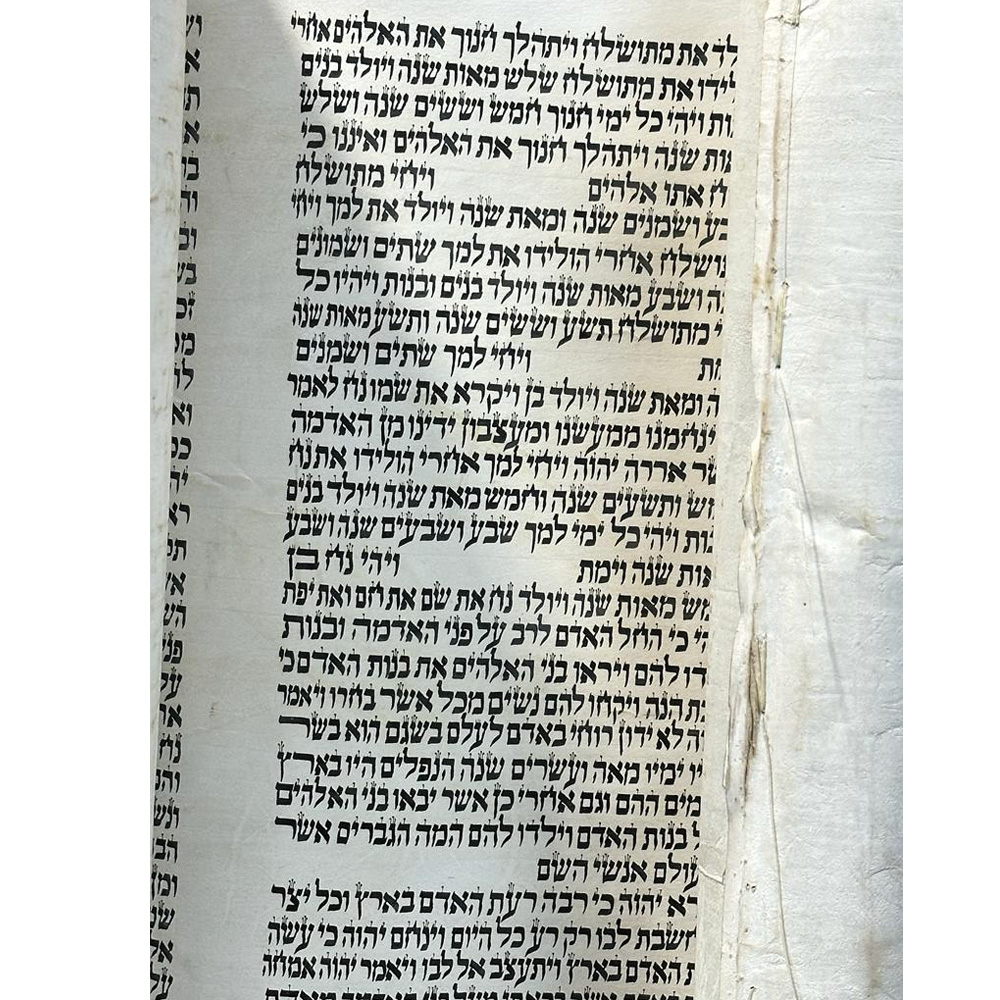 לד את מתושלח ויתהלך חנוך את האלהים אחרי
לידו את מתושלח שלש מאות שנה ויולד בנים
ות ויהי כל ימי חנוך חמש וששים שנה ושלש
אות שנה ויתהלך חנוך את האלהים ואיננו כי
ח אתו אלהים ויחי מתושלח
בע ושמנים שנה ומאת שנה ויולד את למך ויחי
תושלח אחרי הולידו את למך שתים ושמונים
ה ושבע מאות שנה ויולד בנים ובנות ויהיו כל
י מתושלח תשע וששים שנה ותשע מאות שנה
מת ויחי למך שתים ושמנים
ה ומאת שנה ויולד בן ויקרא את שמו נח לאמר
ינחמנו ממעשנו ומעצבון ידינו מן האדמה
שר אררה יהוה ויחי למך אחרי הולידו את נח
מש ותשעים שנה וחמש מאת שנה ויולד בנים
נות ויהי כל ימי למך שבע ושבעים שנה ושבע
אות שנה וימת ויהי נח בן
מש מאות שנה ויולד נח את שם את חם ואת יפת
הי כי החל האדם לרב על פני האדמה ובנות
דו להם ויראו בני האלהים את בנות האדם כי
ת הנה ויקחו להם נשים מכל אשר בחרו ויאמר
ה לא ידון רוחי באדם לעלם בשגם הוא בשר
יו ימיו מאה ועשרים שנה הנפלים היו בארץ
מים ההם וגם אחרי כן אשר יבאו בני האלהים
ל בנות האדם וילדו להם המה הגברים אשר
עולם אנשי השם
רא יהוה כי רבה רעת האדם בארץ וכל יצר
חשבת לבו רק רע כל היום וינחם יהוה כי עשה
ת האדם בארץ ויתעצב אל לבו ויאמר יהוה אמחה